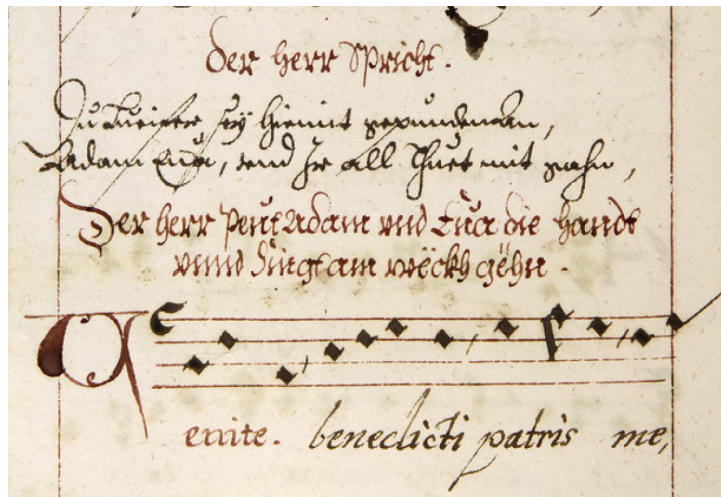 Der herr Spricht.
Du Lucifer sey hiemit gepunden an,
Adam Eua, vnd Ir all Thuet mit gahn,
Der herr Peut Adam vnd Eua die handt
vnnd Singt am wëckh gëhn.
Venite. benedicti patris me,